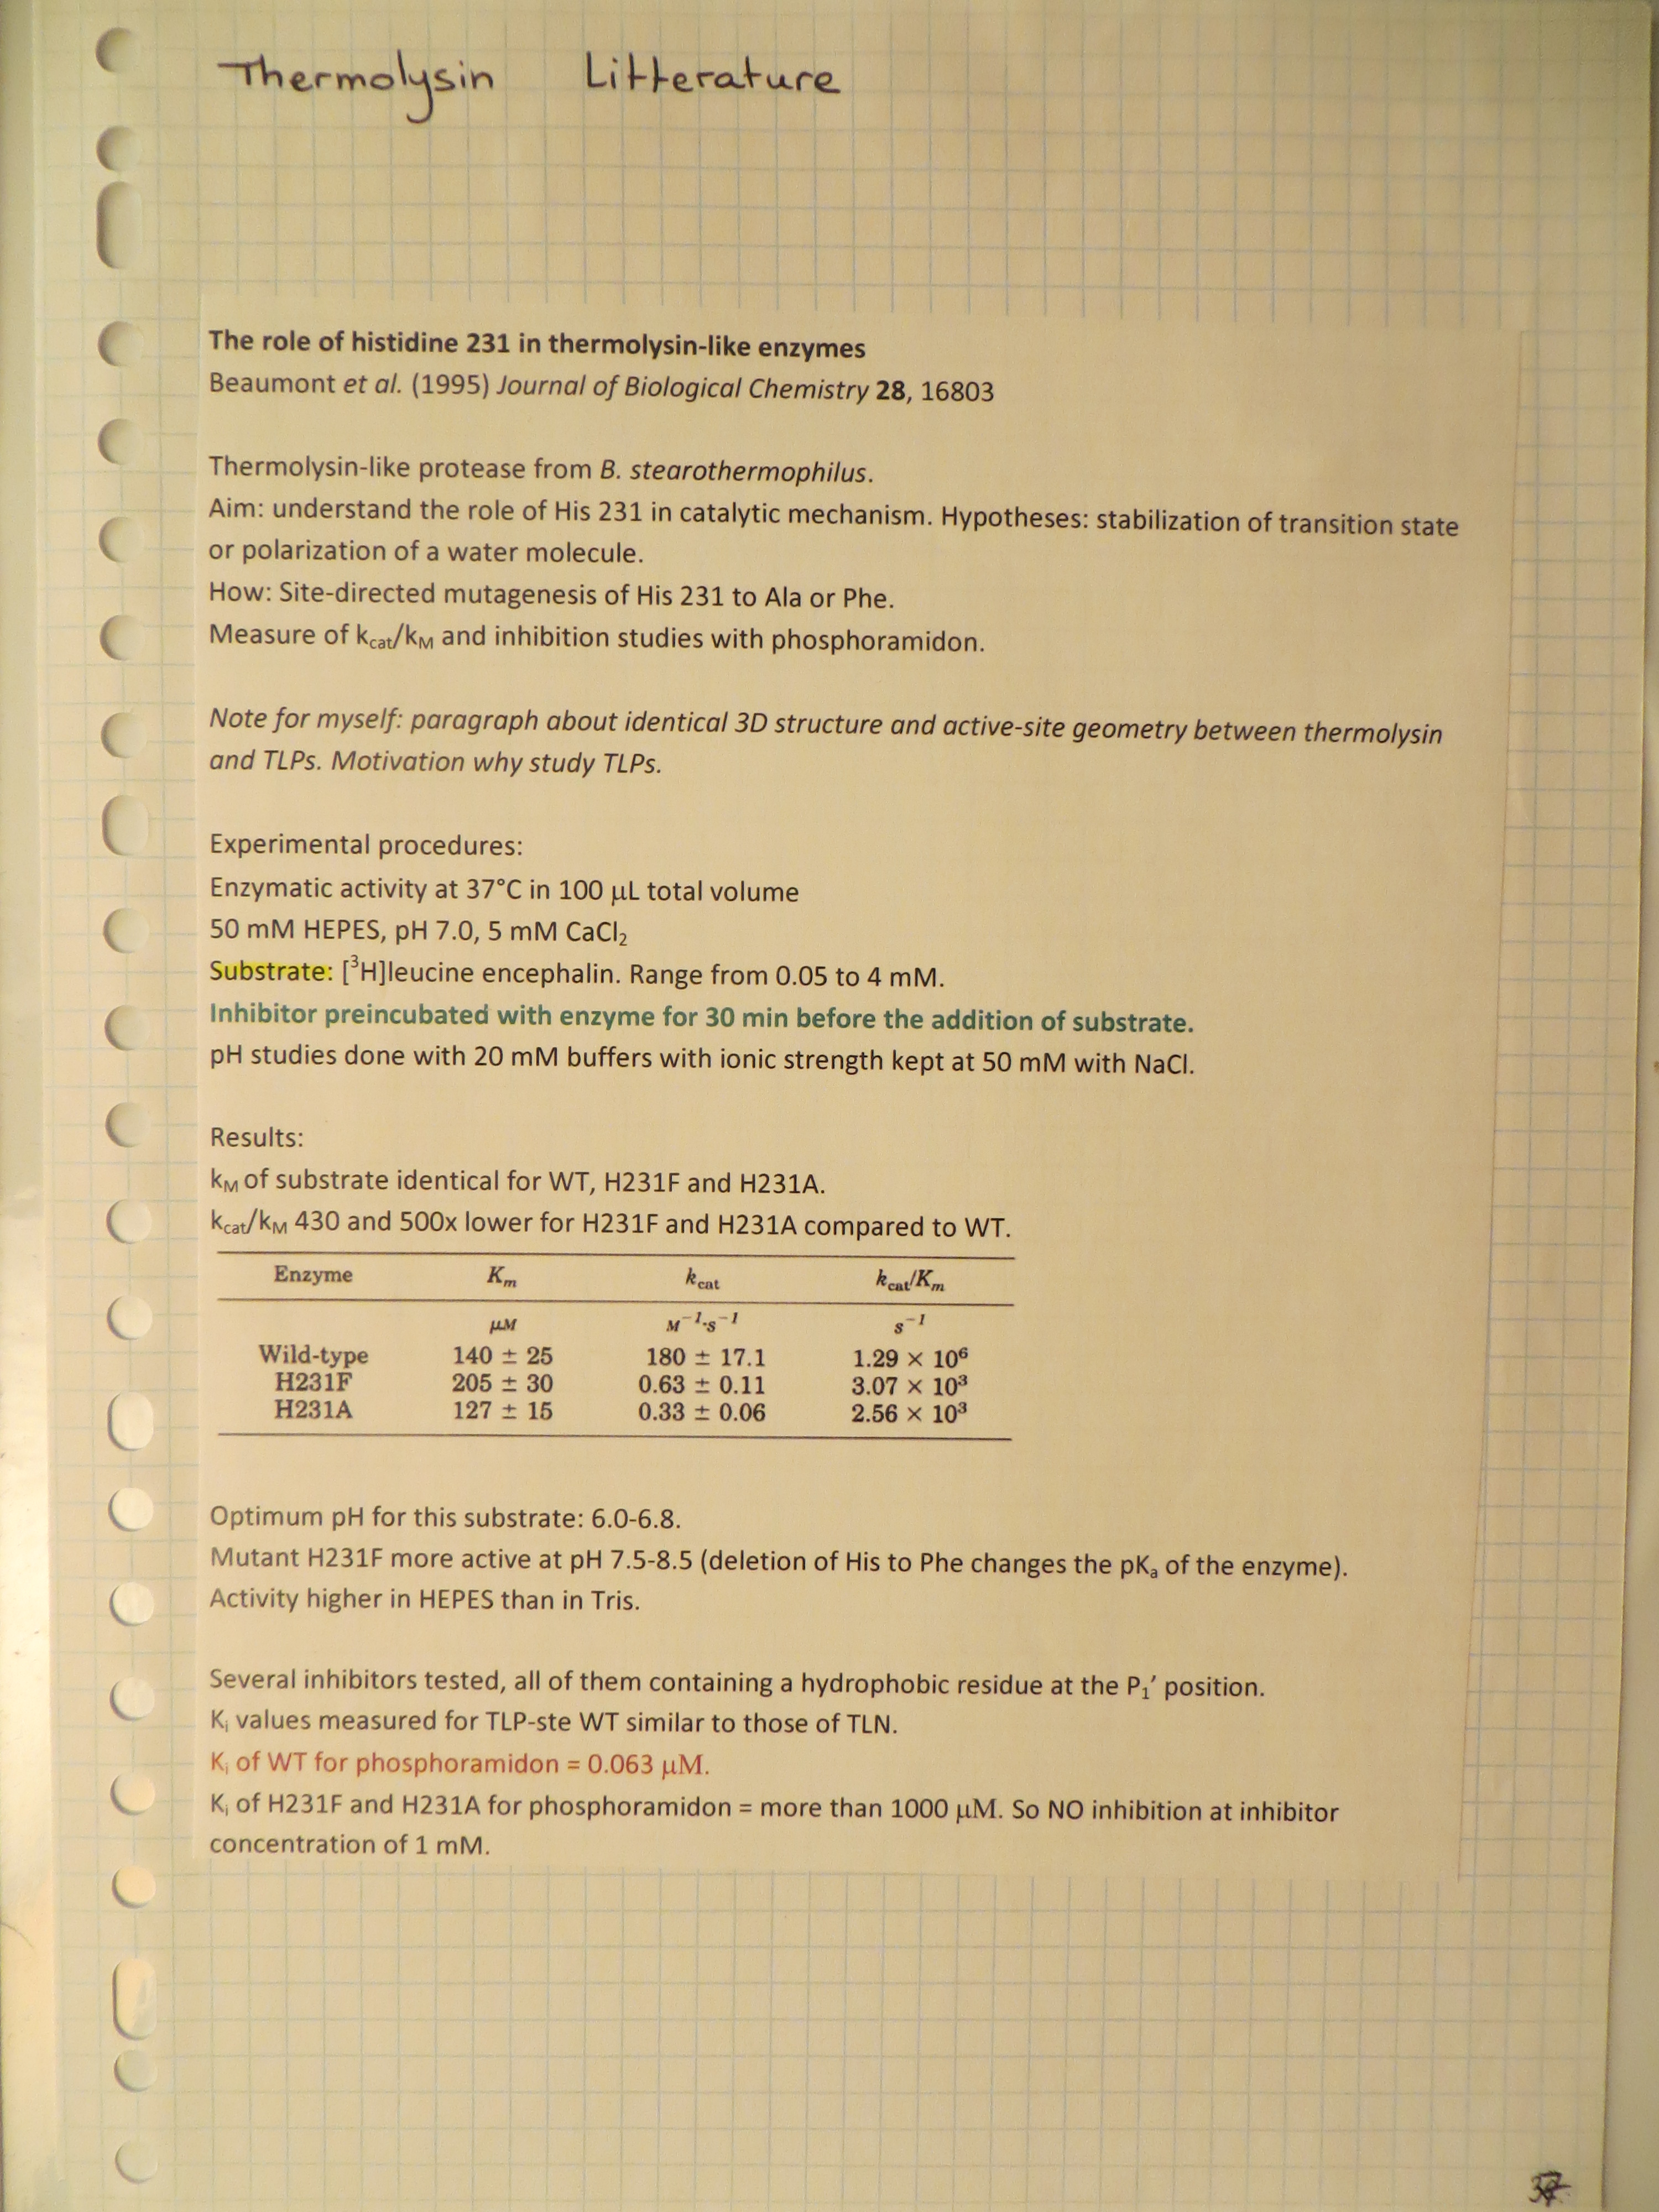 Thermolysin Litterature
The role of histidine 231 in thermolysin-like enzymes
Beaumont et al. (1995) Journal of Biological Chemistry 28, 16803
Thermolysin-like protease from B. stearothermophilus.
Aim: understand the role of His 231 in catalytic mechanism. Hypotheses: stabilization of transition state
or polarization of a water molecule.
How: Site-directed mutagenesis of His 231 to Ala or Phe.
Measure of kcat/kM and inhibition studies with phosphoramidon.
Note for myself: paragraph about identical 3D structure and active-site geometry between thermolysin
and TLPs. Motivation why study TLPs.
Experimental procedures:
Enzymatic activity at 37°C in 100 µL total volume
50 mM HEPES, pH 7.0, 5 mM CaCl₂
Substrate: [³H]leucine encephalin. Range from 0.05 to 4 mM.
Inhibitor preincubated with enzyme for 30 min before the addition of substrate.
pH studies done with 20 mM buffers with ionic strength kept at 50 mM with NaCl.
Results:
kM of substrate identical for WT, H231F and H231A.
kcat/kM 430 and 500x lower for H231F and H231A compared to WT.
Enzyme Km kcat kcat/Km
µM M⁻¹·s⁻¹ s⁻¹
Wild-type 140 ± 25 180 ± 17.1 1.29 × 10⁶
H231F 205 ± 30 0.63 ± 0.11 3.07 × 10³
H231A 127 ± 15 0.33 ± 0.06 2.56 × 10³
Optimum pH for this substrate: 6.0-6.8.
Mutant H231F more active at pH 7.5-8.5 (deletion of His to Phe changes the pKa of the enzyme).
Activity higher in HEPES than in Tris.
Several inhibitors tested, all of them containing a hydrophobic residue at the P₁′ position.
Ki values measured for TLP-ste WT similar to those of TLN.
Ki of WT for phosphoramidon = 0.063 µM.
Ki of H231F and H231A for phosphoramidon = more than 1000 µM. So NO inhibition at inhibitor
concentration of 1 mM.